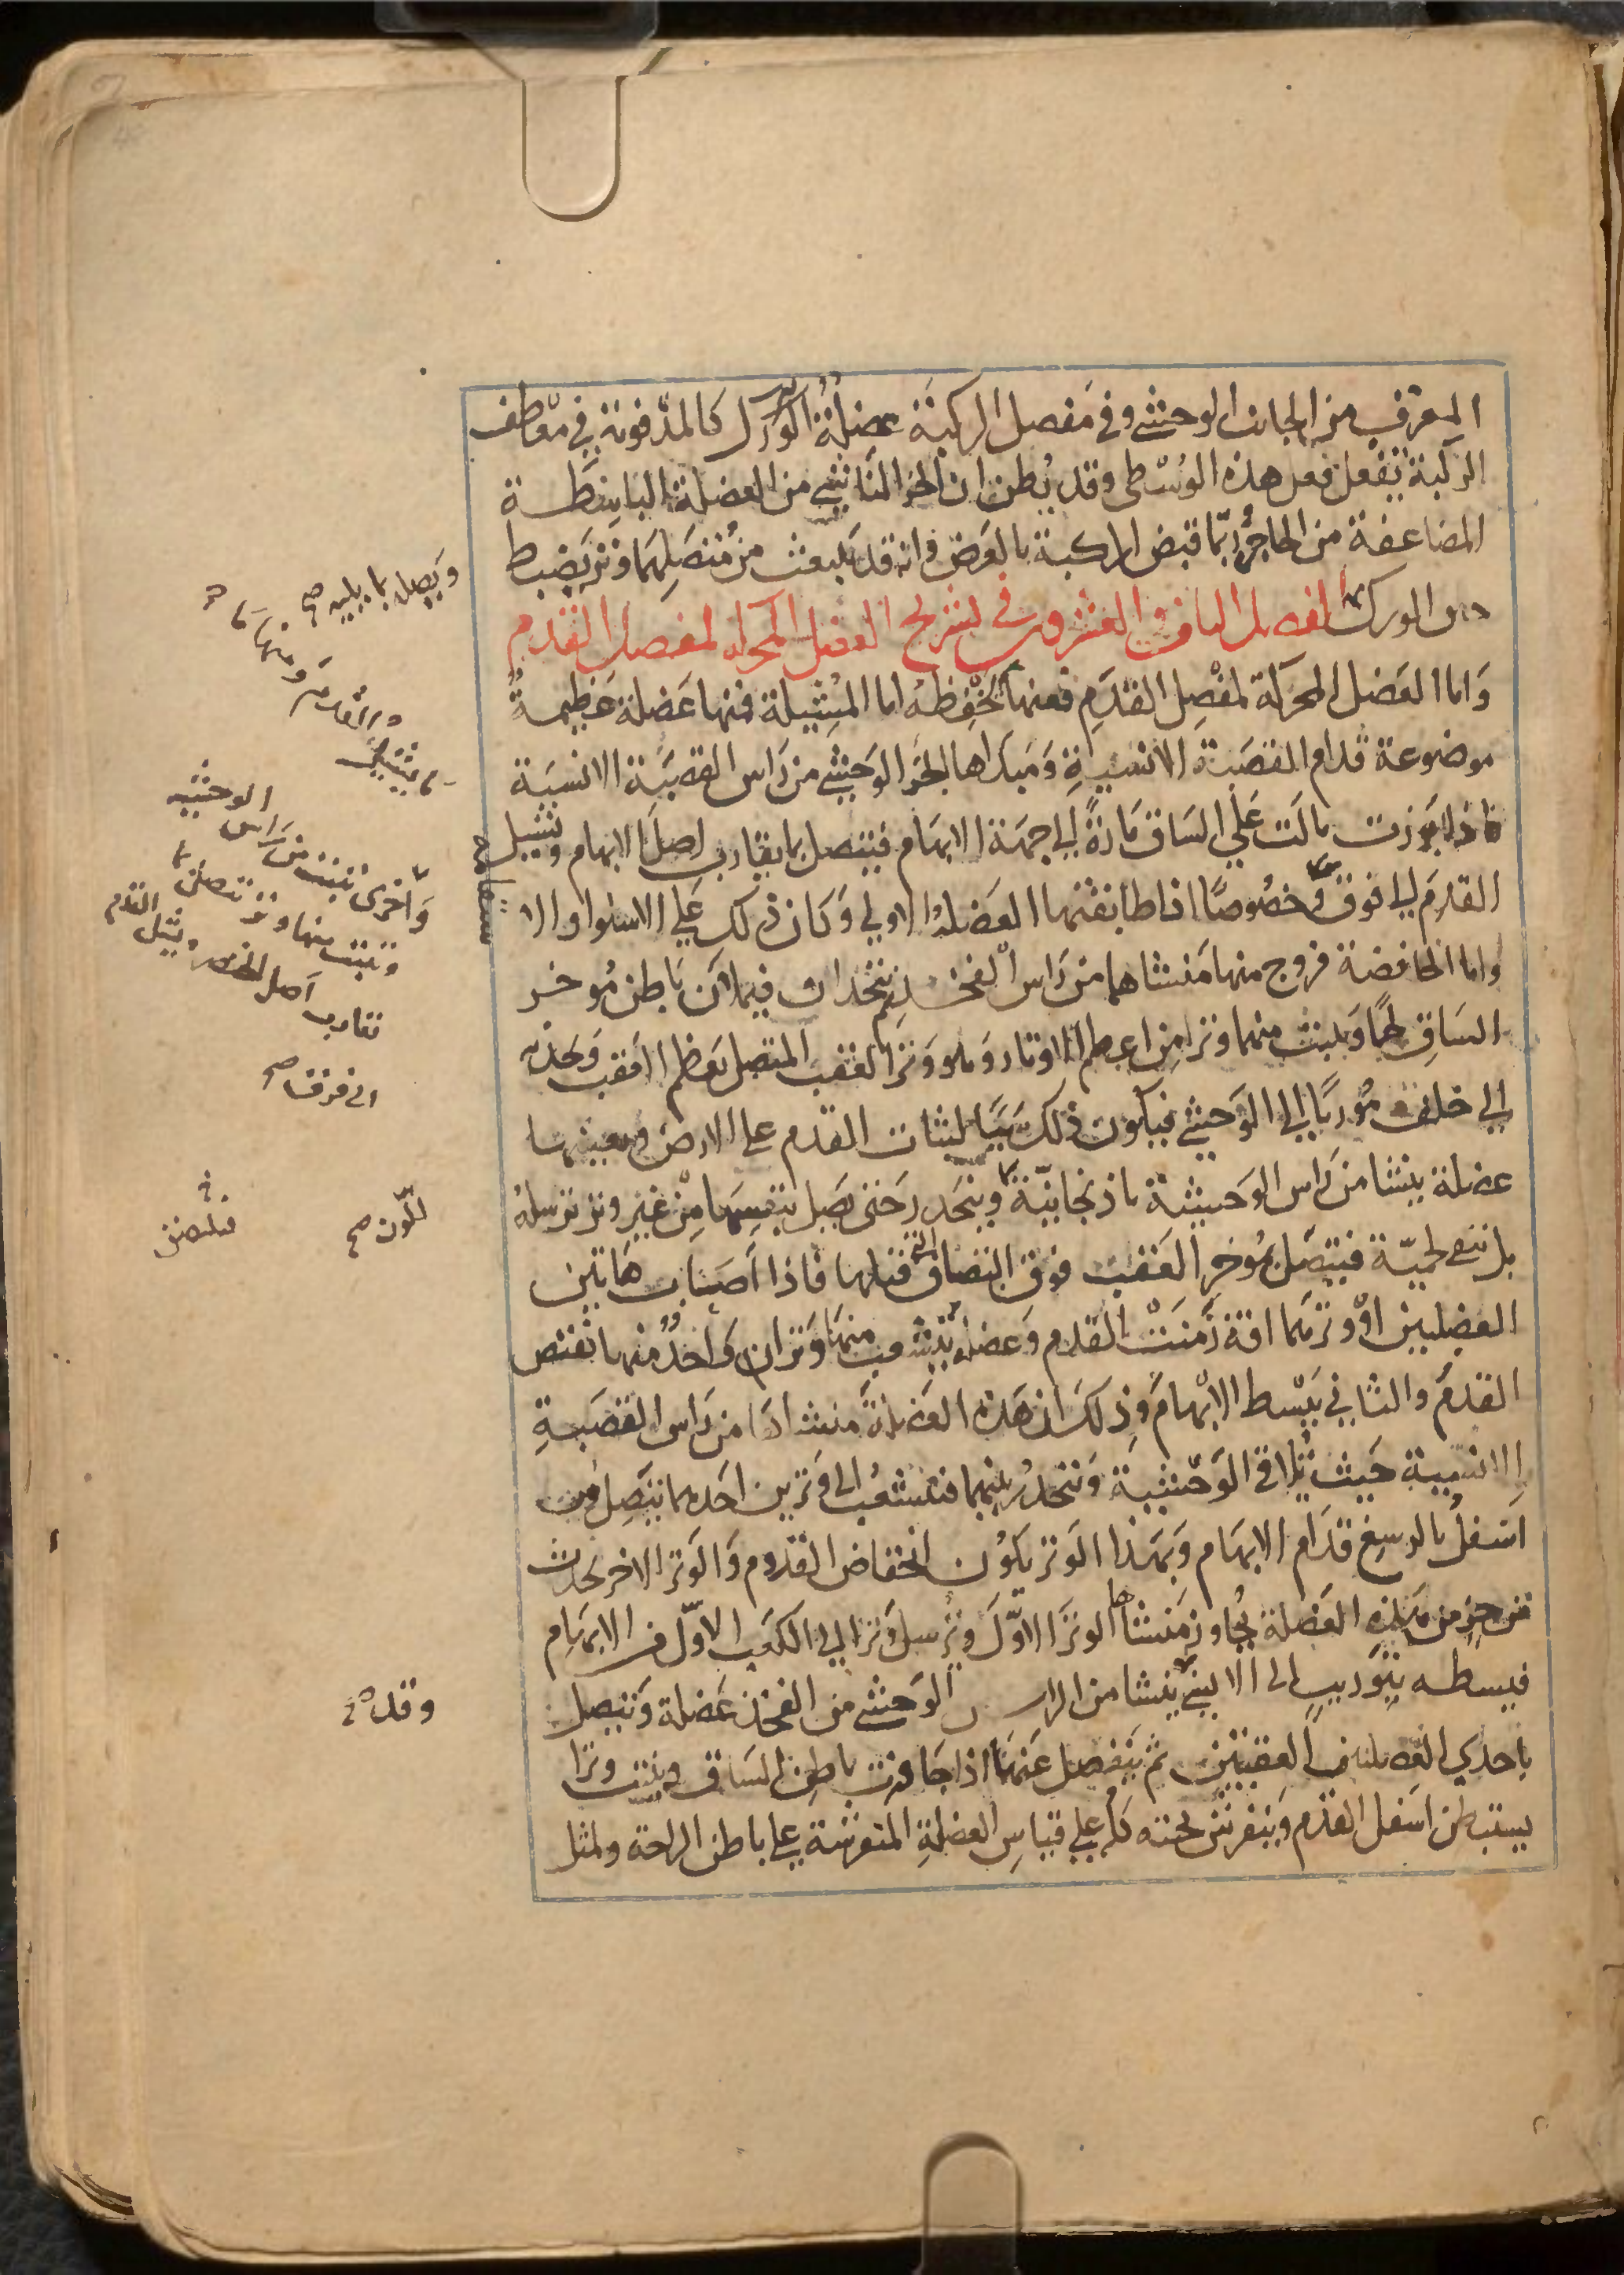 المعرق من الجانب الوحشي وفي مفصل الركبة عضلة كالمدفونة في معطف
الركبة تفعل فعل هذه الوسطى وقد يظن ان الجز الناشي من العضلة الباسطة
المضاعفة من الحاجز ربما قبض الركبة بالعرض وانه قد ينبعث من متصلهما وتر يضبط
الورك الفصل التاسع والعشرون في تشريح العضل المحركه لمفصل القدم
واما العضل المحركة لمفصل القدم فمنها تخفضه اما المشيلة فمنها عضلة عظيمة
موضوعة قدام القصبة الانسية ومبداها الجز الوحشي من راس القصبة الانسية
فاذا برزت مالت على الساق مارة الى جهة الابهام فيتصل بما يقارب اصل الابهام وتشيل
القدم الى فوق خصوصا اذا طابقتها العضلة الاولى وكان ذلك على الاستوا والا
واما الخافضة فزوج منها منشاهما من راس الفخذ ثم ينحدران فيملان باطن موخر
الساق لحما وينبت منهما وتر من اعظم الاوتار وهو وتر العقب المتصل بعظم العقب ويجذبه
الى خلف موربا الى الوحشي فيكون ذلك سببا لثبات القدم على الارض ويعينهما
عضلة ينشا من راس الوحشية باذنجانية وينحدر حتى يصل بنفسها من غير وتر ترسله
بل تبقى لحمية فيتصل بموخر العقب فوق التصاق التي قبلها فاذا اصاب هاتين
العضلتين او وترهما افة زمنت القدم وعضلة يتشعب منها وتران واحد منهما يقبض
القدم والثاني يبسط الابهام وذلك ان هذه العضلة منشاها من راس القصبة
الانسية حيث تلاقي الوحشية وتنحدر بينهما فتنشعب الى وترين احدهما يتصل من
اسفل بالرسغ قدام الابهام وبهذا الوتر يكون انخفاض القدم والوتر الاخر يحدث
من جز من هذه العضلة يجاوز منشاها الوتر الاول وترسل وترا الى الكعب الاول من الابهام
فيبسطه بتوريب الى الانسي ينشا من الراس الوحشي من الفخذ عضلة وتتصل
باحدى العضلتين العقبيتين ثم ينفصل عنها اذا جاوزت باطن الساق وينبت وترا
يستبطن اسفل القدم وينفرش تحته كله على قياس العضلة المنفرشة على باطن الراحة ولمثل
ويصل بما يليه صح
واخرى تنبت من راس الوحشية
وتنبت منها وتر تتصل بما
تقارب اصل الخنصر ويشيل القدم
الى فوق صح
اللون صح
وقد